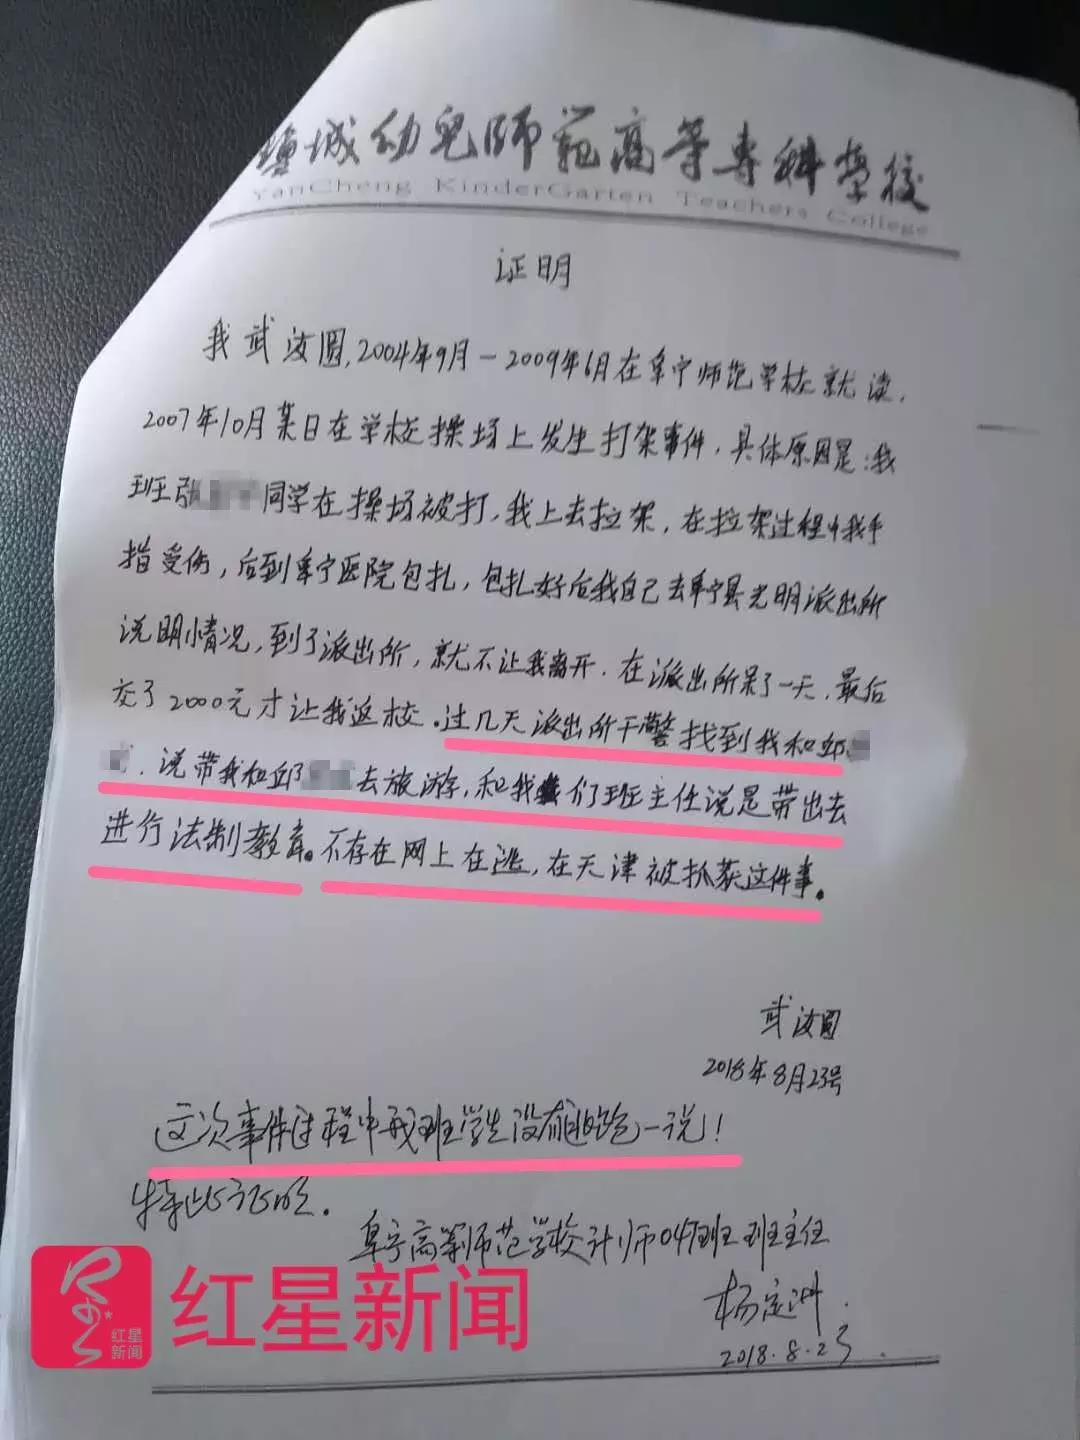 盐城幼儿师范高等专科学校
YanCheng KinderGarten Teachers College
证明
我武汝圆,2004年9月—2009年6月在阜宁师范学校就读,
2007年10月某日在学校操场上发生打架事件,具体原因是:我
班张 同学在操场被打,我上去拉架,在拉架过程中我手
指受伤,后到阜宁医院包扎,包扎好后我自己去阜宁县光明派出所
说明情况,到了派出所,就不让我离开.在派出所呆了一天,最后
交了2000元才让我返校.过几天派出所干警找到我和邱
,说带我和邱 去旅游,和我们班主任说是带出去
进行法制教育。不存在网上在逃,在天津被抓获这件事。
武汝圆
2018年8月23号
这次事件过程中我班学生没有逃跑一说!
特此证明.
阜宁高等师范学校计师04班班主任
杨定
2018.8.23.
红星新闻
红星
新闻